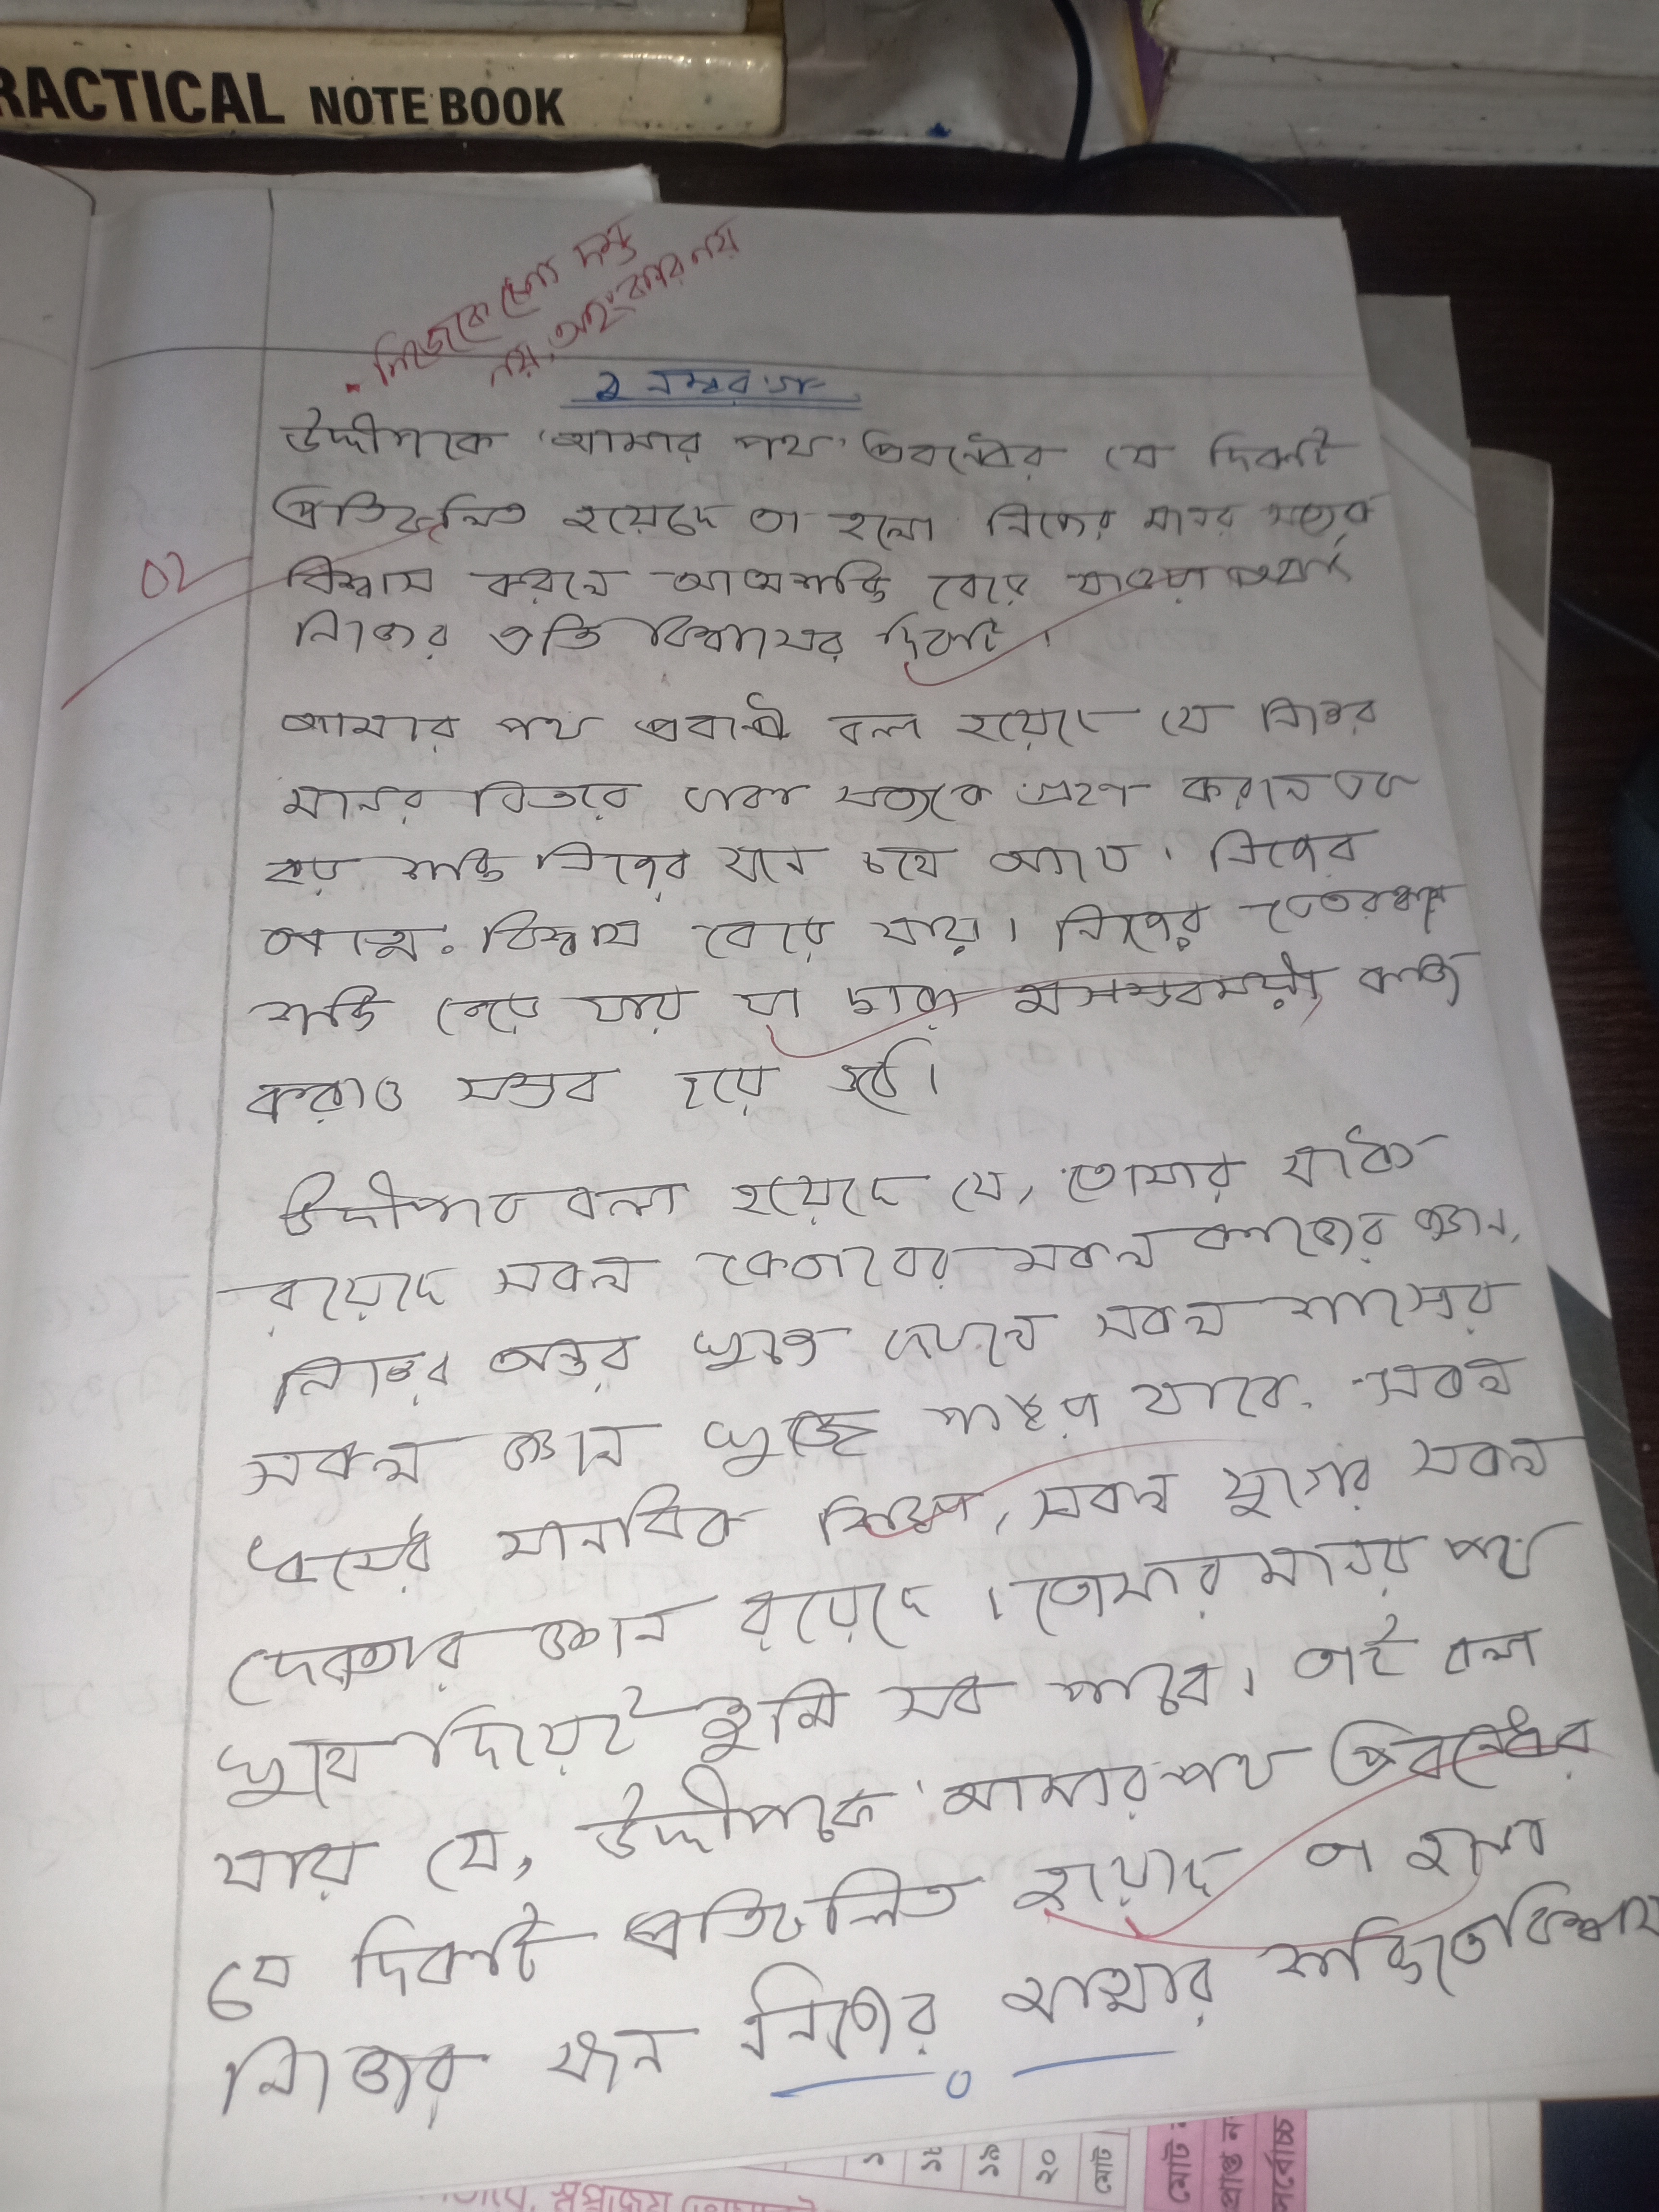 RACTICAL NOTE BOOK
নিজেকে চেনা দম্ভ
নয়, অহংকার নয়
২ নম্বর গ
উদ্দীপকে 'আমার পথ' প্রবন্ধের যে দিকটি
প্রতিফলিত হয়েছে তা হলো নিজের মনের সত্যকে
02
বিশ্বাস করলে আত্মশক্তি বেড়ে যাওয়া অর্থাৎ
নিজের প্রতি বিশ্বাসের দিকটি।
আমার পথ প্রবন্ধে বলা হয়েছে যে নিজের
মনের ভিতরে থাকা সত্যকে গ্রহণ করলে এক
বড় শক্তি নিজের মনে চলে আসে। নিজের
আত্মবিশ্বাস বেড়ে যায়। নিজের ভেতরকার
শক্তি বেড়ে যায় যা দ্বারা অসম্ভবময় কাজ
করাও সম্ভব হয়ে ওঠে।
উদ্দীপকে বলা হয়েছে যে, তোমার মাঝে
রয়েছে সকল কেতাবের সকল কালের জ্ঞান,
নিজের অন্তর খুলে দেখলে সকল শাস্ত্রের
সকল জ্ঞান খুজে পাওয়া যাবে। সকল
ধর্মের মানবিক শিক্ষা, সকল যুগের সকল
দেবতার জ্ঞান রয়েছে। তোমার মনের পথ
খুলে দিয়েই তুমি সব পাবে। তাই বলা
যায় যে, উদ্দীপকে 'আমার পথ প্রবন্ধের
যে দিকটি প্রতিফলিত হয়েছে তা হলো
নিজের মন নিজের আত্মার শক্তিতে বিশ্বাস
১৮
১৯
২০
মোট
মোট
প্রাপ্ত ন
সর্বোচ্চ